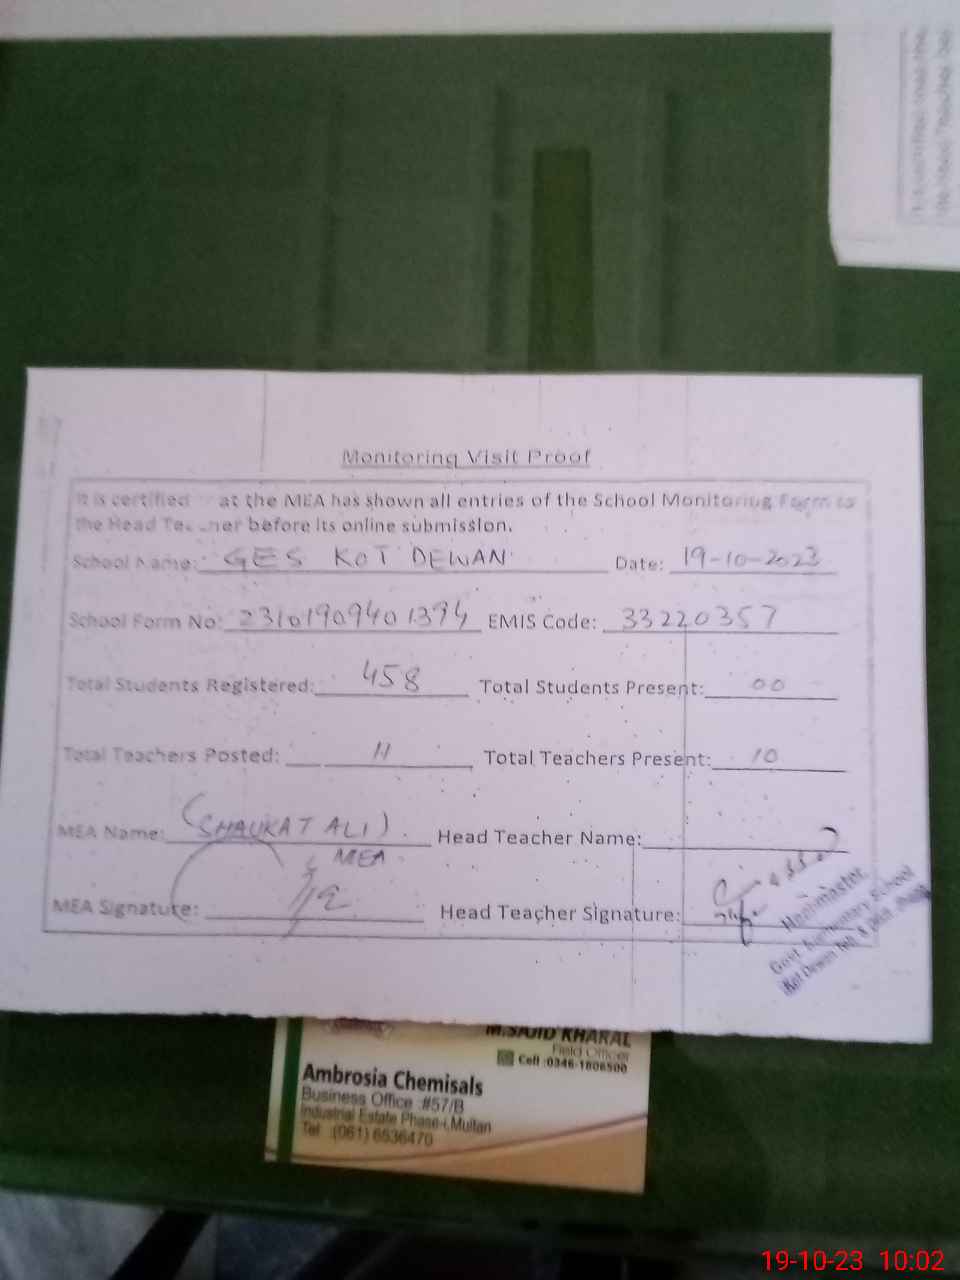 Monitoring Visit Proof
It is certified at the MEA has shown all entries of the School Monitoring Form to
the Head Teacher before its online submission.
School Name: GES KOT DEWAN Date: 19-10-2023
School Form No: 23101909401394 EMIS Code: 33220357
Total Students Registered: 458 Total Students Present: 00
Total Teachers Posted: 11 Total Teachers Present: 10
MEA Name: (SHAUKAT ALI) Head Teacher Name:
MEA
MEA Signature: Head Teacher Signature:
Headmaster
Govt. Elementary School
Kot Dewan
M.SAJID KHARAL
Field Officer
Cell :0346-1806500
Ambrosia Chemisals
Business Office :#57/B
Industrial Estate Phase-I, Multan
Tel :(061) 6536470
19-10-23 10:02